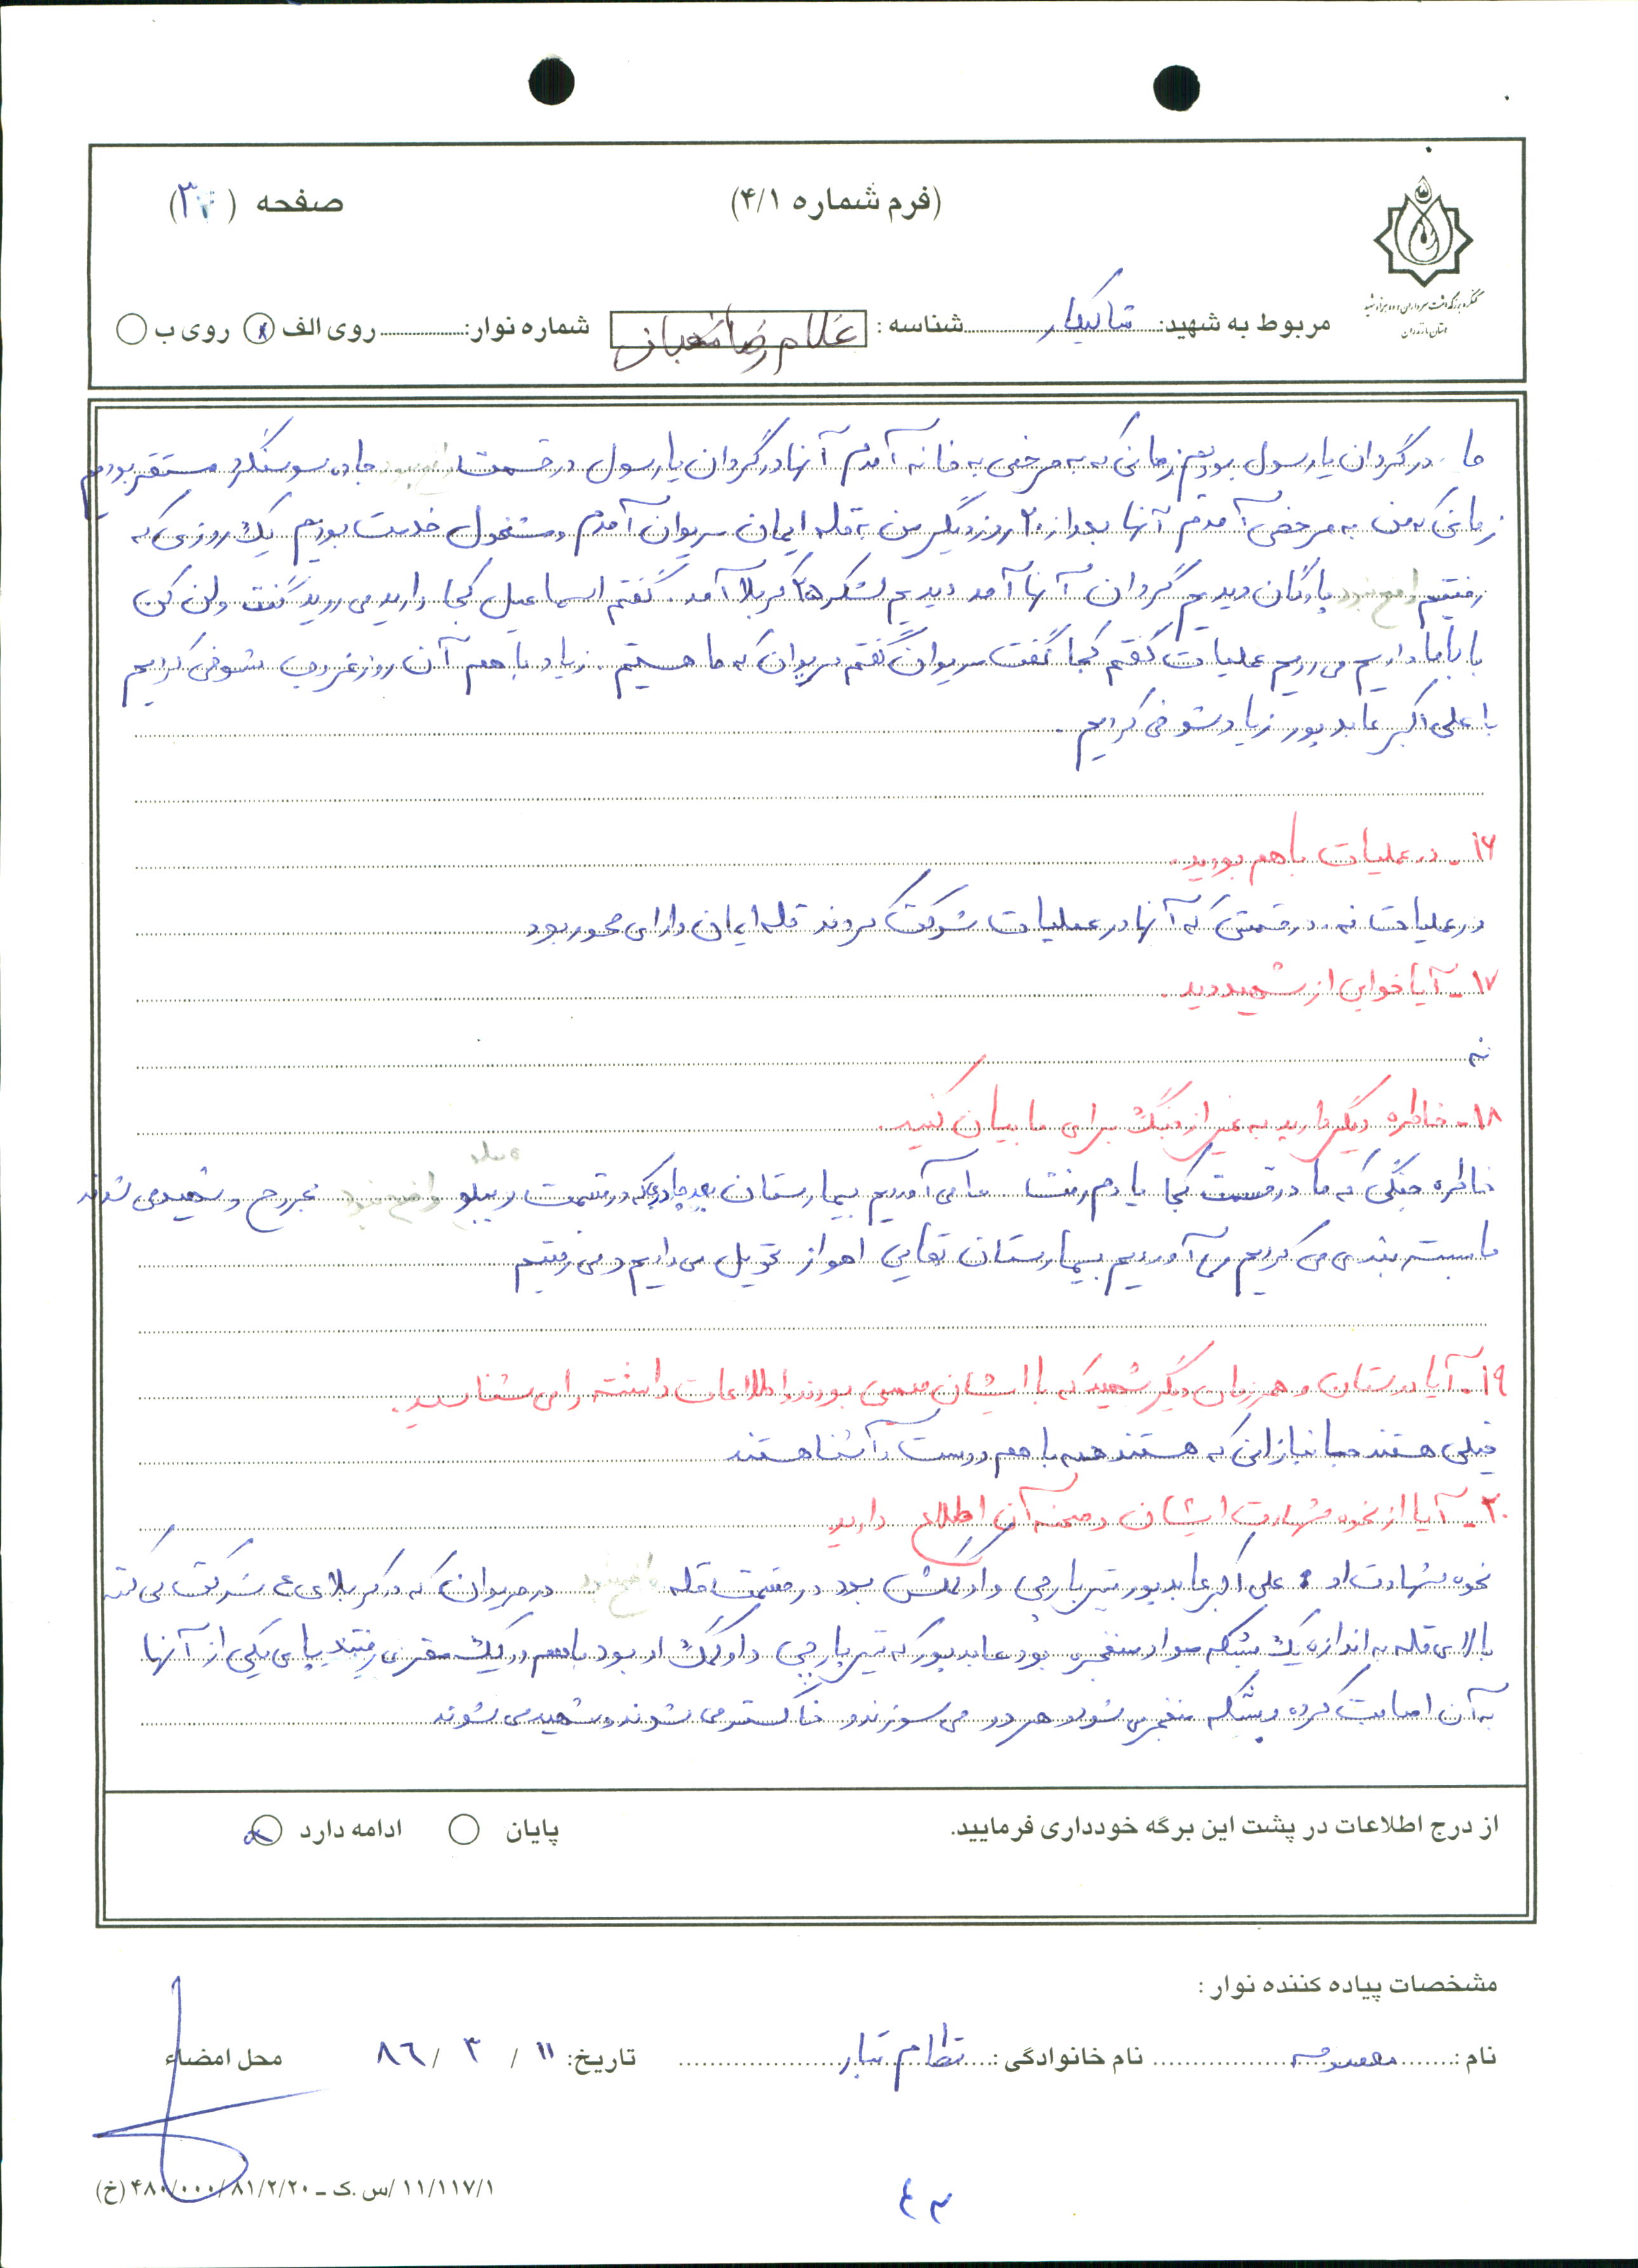 (فرم شماره ۴/۱)
صفحه (۳)
کنگره بزرگداشت سرداران و ده هزار شهید
استان مازندران
مربوط به شهید: شناسه: غلامرضا شعبانی شماره نوار: روی الف روی ب
ما در گردان یا رسول بودیم زمانی که به مرخصی به خانه آمدم آنها در گردان یا رسول در قسمت جاده سوسنگرد مستقر بودیم
زمانی که من به مرخصی آمدم آنها بعد از ۲۰ روز دیگر من به قله ایمان مریوان آمدم و مشغول خدمت بودیم یک روزی که
رفتیم واضح نبود پادگان دیدیم گردان آنها آمد دیدیم لشکر ۲۵ کربلا آمد. گفتم اسماعیل کجا دارید می روید گفت ولن کن
بابا ما داریم می رویم عملیات گفتم کجا گفت مریوان گفتم مریوان که ما هستیم. زیاد با هم آن روز غروب شوخی کردیم
با علی اکبر عابدپور زیاد شوخی کردیم.
۱۶- در عملیات با هم بودید.
در عملیات نه. در قسمتی که آنها در عملیات شرکت کردند قله ایمان دارای محور بود
۱۷- آیا خوابی از شهید دیدید.
نه
۱۸- خاطره دیگر دارید به غیر از جنگ برای ما بیان کنید.
خاطره جنگی که ما در قسمت کجا یادم رفت ما می آمدیم بیمارستان که در قسمت واضح نبود مجروح و شهید می شدند
ما بسته بندی می کردیم می آوردیم بیمارستان بقایی اهواز تحویل می دادیم و می رفتیم
۱۹- آیا دوستان و همرزمان دیگر شهید که با ایشان صمیمی بودند و اطلاعات داشته را می شناسید.
خیلی هستند جانبازانی که هستند همه با هم دوست و آشنا هستند
۲۰- آیا از نحوه شهادت ایشان و صحنه آن اطلاع دارید
نحوه شهادت او علی اکبر عابدپور تیربارچی و او کمکش بود در قسمت قله واضح نبود در مریوان که در کربلای ۴ شرکت می کنند
بالای قله به اندازه یک بشکه مواد منفجره بود عابدپور که تیربارچی و او کمک او بود با هم در یک مقری رفتند پای یکی از آنها
به آن اصابت کرده و بشکه منفجر می شود و هر دو می سوزند و خاکستر می شوند و شهید می شوند
از درج اطلاعات در پشت این برگه خودداری فرمایید. پایان ادامه دارد
مشخصات پیاده کننده نوار:
نام: معصومه نام خانوادگی: نظام تبار تاریخ: ۱۱ / ۳ / ۸۶ محل امضاء
۱۱/۱۱۷/۱ /س.ک - ۴۸۰/۰۰۰/۸۱/۲/۲۰ (خ)
۴۳